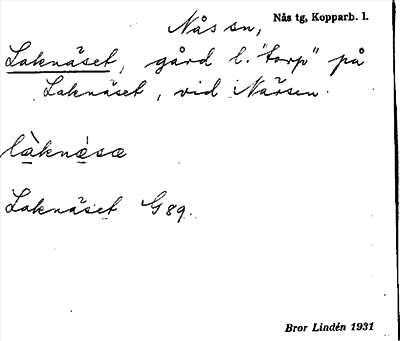 Nås sn, Nås tg, Kopparb. l.
Laknäset, gård l. "torp" på
Laknäset, vid Närsen.
làknæ̀sæ
Laknäset G 89.
Bror Lindén 1931